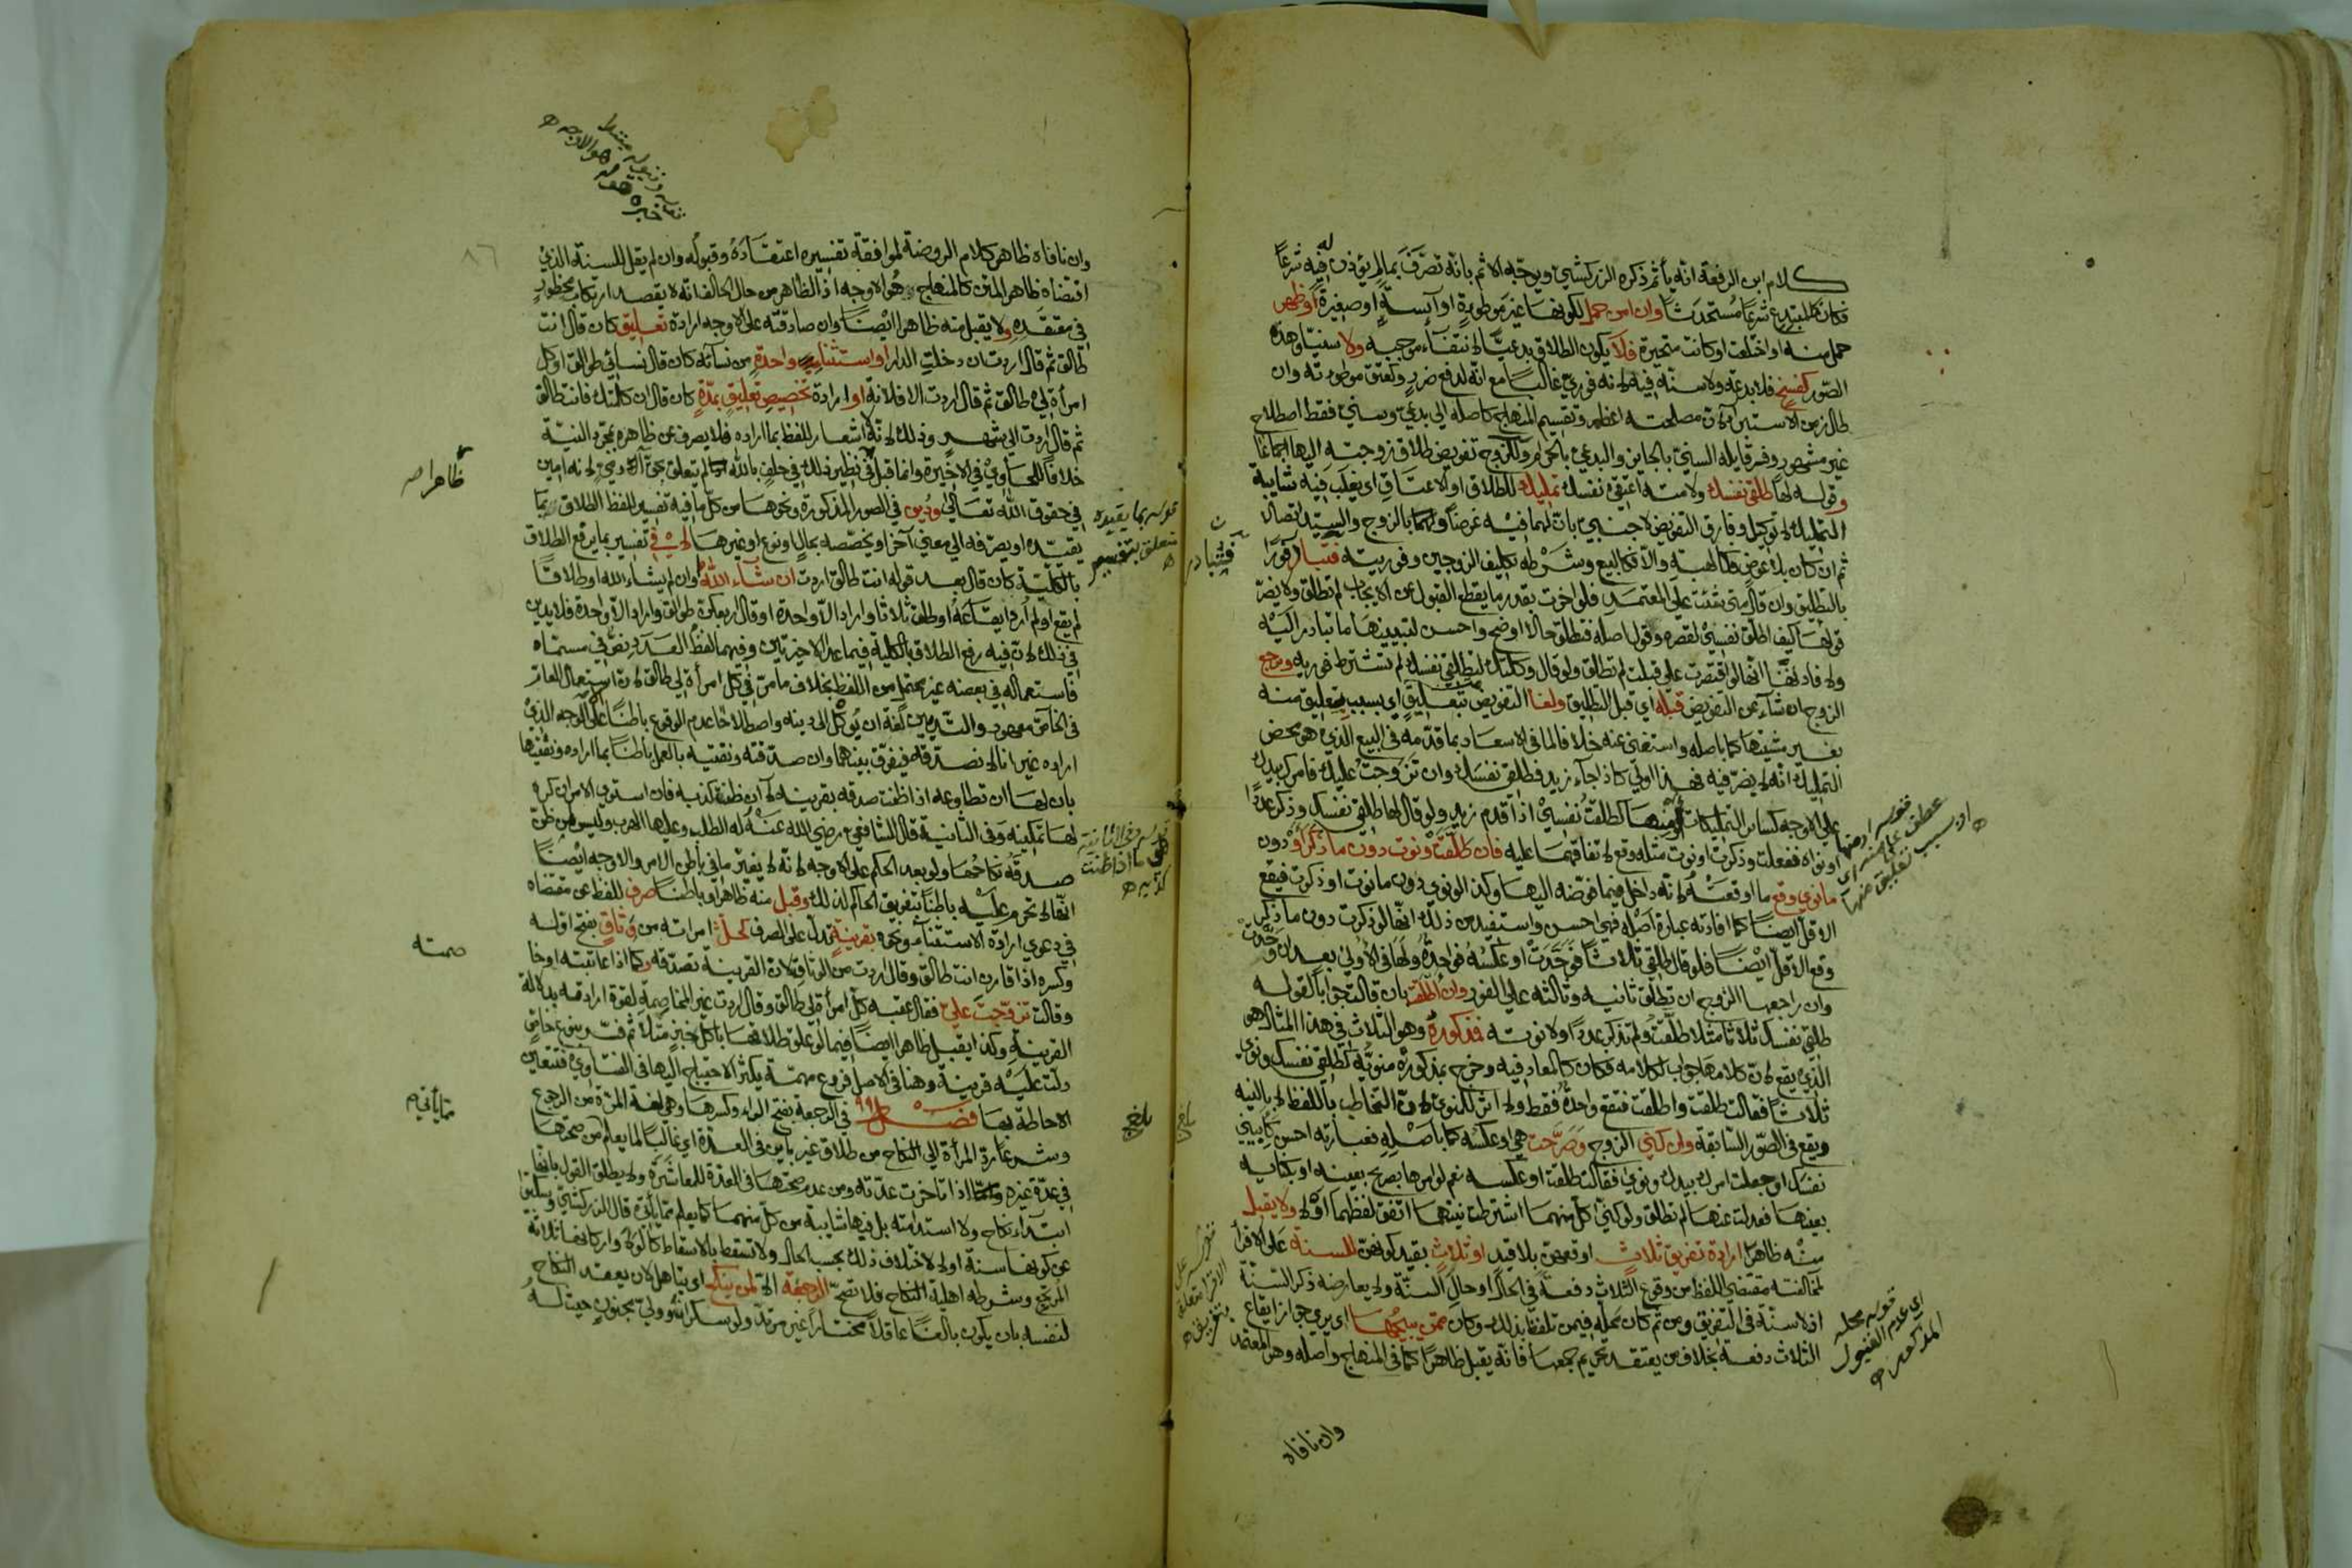 كلام ابن الرفعة انه يأثم ذكره الزركشي ويوجه الاثم بانه تصرف بما لم يؤذن له فيه شرعًا
فكان كالمبتدع شرعًا مستحدثًا وان امن حمل لكونها غير موطوءة او آيسة او صغيرة او ظهر
حمل منه او اختلعت او كانت متحيرة فلا يكون الطلاق بدعيًا لانتفاء موجبه ولا سنيًا وهذه
الصور كفسخ فلا بدعة ولا سنة فيه لانه فوري غالبًا مع انه لدفع ضرر وكعتق موطوءته وان
طال زمن الاستبراء لان مصلحته اعظم وتقسيم المنهاج كاصله الى بدعي وسني فقط اصطلاح
غير مشهور وفسر قايله السني بالجايز والبدعي بالحرام وللزوج تفويض طلاق زوجته اليها اجماعا
وقوله لها طلقي نفسك ولامته اعتقي نفسك تمليك للطلاق او الاعتاق اي يغلب فيه شايبة
التمليك لا توكيل وفارق التفويض لاجنبي بان لهما فيه غرضًا ولهما بالزوج والسيد اتصالًا
ثم ان كان بلا عوض فكالهبة والا فكالبيع وشرطه تكليف الزوجين وفوريته فتبادر فورًا
بالتطليق وان قال متى شئت على المعتمد فلو اخرت بقدر ما يقطع القبول عن الايجاب لم تطلق ولا يضر
قولها كيف اطلق نفسي لقصره وقول اصله فتطلق حالا اوضح واحسن لتبيينها ما تبادر اليه
ولافادتها انها لو اقتصرت على قبلت لم تطلق ولو قال وكلتك لتطلقي نفسك لم يشترط فوريه ورجع
الزوج ان شاء عن التفويض قبله اي قبل التطليق ولغا التفويض بتعليق اي بسبب تعليق منه
بغير مشيتها كما باصله واستغنى عنه خلافا لما في الاسعاد بما قدمه في البيع الذي هو محض
التمليك انه لا يضر فيه فهذا اولى كاذا جاء زيد فطلقي نفسك وان تزوجت عليك فامرك بيدك
على الاوجه كساير التمليكات او منها كطلقت نفسي اذا قدم زيد ولو قال لها طلقي نفسك وذكر عددًا
او نواه ففعلت وذكرت او نوت مثله وقع لاتفاقهما عليه فان طلقت ونوت دون ما ذكر او دون
ما نوى وقع ما اوقعته لانه داخل فيما فوضه اليها وكذا لو نوى دون ما نوت او ذكرت فيقع
الاقل ايضًا كما افادته عبارة اصله فهي احسن واستفيد من ذلك انها لو ذكرت دون ما ذكر
وقع الاقل ايضًا فلو قال طلقي ثلاثًا فوحدت او عكسه فواحدة ولها في الاولى بعد ان وحدت
وان راجعها الزوج ان تطلق ثانيه وثالثه على الفور وان اطلقت بان قالت جوابا لقوله
طلقي نفسك ثلاثا مثلا طلقت ولم تذكر عددًا ولا نوته فمذكوره وهو الثلاث في هذا المثال هو
الذي يقع لان كلامها جواب لكلامه فكان كالمعاد فيه وخرج بمذكوره منويه كطلقي نفسك ونوى
ثلاثًا فقالت طلقت واطلقت فتقع واحدة فقط ولا اثر للمنوي لان التخاطب باللفظ لا بالنية
ويقع في الصور السابقة وان كنى الزوج وصرحت هي او عكسه كما باصله فعبارته احسن كابيني
نفسك او جعلت امرك بيدك ونوى فقالت طلقت او عكسه نعم لو امرها بصريح بعينه او بكنايه
بعينها فعدلت عنها لم تطلق ولو كنى كل منهما اشترطت نيتهما اتفق لفظهما او لا ولا يقبل
منه ظاهرا ارادة تفريق ثلاث اوقعهن بلا قيد او ثلاث بقيد كونهن للسنة على الاقرأ
لمخالفته مقتضى اللفظ من وقوع الثلاث دفعة في الحال او حال السنة ولا يعارضه ذكر السنة
اذ لا سنة في التفريق ومن ثم كان محله فيمن تلفظ بذلك وكان ممن يبيحها اي يرى جواز ايقاع
الثلاث دفعة بخلاف من يعتقد تحريم جمعها فانه يقبل ظاهرًا كما في المنهاج واصله وهو المعتمد
وان نافاه
فتبادر
بلغ
قوله او منها
عطف على منه اي
او بسبب تعليق منها
قوله على
الاقرا متعلق
بتفريق
قوله محله
اي عدم القبول
المذكور
وان نافاه ظاهر كلام الروضة لموافقة تفسيره اعتقاده وقبوله وان لم يقل للسنة الذي
اقتضاه ظاهر المتن كالمنهاج هو الاوجه اذ الظاهر من حال الحالف انه لا يقصد ارتكاب محظور
في معتقده ولا يقبل منه ظاهرا ايضًا وان صادقته على الاوجه ارادة تعليق كان قال انت
طالق ثم قال اردت ان دخلت الدار او استثناء واحدة من نسائه كان قال نسائي طوالق او كل
امرأة لي طالق ثم قال اردت الا فلانة او ارادة تخصيص تعليق بمدة كان قال ان كلمتك فانت طالق
ثم قال اردت الى شهر وذلك لانه لا اشعار للفظ بما اراده فلا يصرف عن ظاهره بمجرد النية
خلافًا للحاوي في الاخيرة وانما قبل في نظير ذلك في حلف بالله لم يتعلق بحق آدمي لانه امين
في حقوق الله تعالى ودين في الصور المذكورة ونحوها من كل ما فيه تفسير للفظ الطلاق بما
يقيده او يصرفه الى معنى آخر او يخصصه بحال او نوع او غيرها لا في تفسير بما يرفع الطلاق
بالكلية كان قال بعد قوله انت طالق اردت ان شاء الله او ان لم يشاء الله او طلاقًا
لم يقع او لم ارد ايقاعه او طلق ثلاثا واراد الا واحدة او قال اربعكن طوالق واراد الا واحدة فلا يدين
في ذلك لان فيه رفع الطلاق بالكلية فيما عدا الاخيرتين وفيهما لفظ العدد نص في مسماه
فاستعماله في بعضه غير محتمل من اللفظ بخلاف ما مر في كل امرأة لي طالق لان استعمال العام
في الخاص معهود والتديين لغة ان يوكل الى دينه واصطلاحًا عدم الوقوع باطنًا على الوجه الذي
اراده غير انا لا نصدقه فيفرق بينهما وان صدقته ونفتيه بالعمل باطنًا بما اراده ونفتيها
بان لها ان تطاوعه اذا ظنت صدقه بقرينه لا ان ظنت كذبه فان استوى الامران كره
لها تمكينه وفي الثانية قال الشافعي رضي الله عنه له الطلب وعليها الهرب وليس لمن ظن
صدقه نكاحها ولو بعد الحكم على الاوجه لانه لا يغير ما في باطن الامر والاوجه ايضًا
انها لا تحرم عليه باطنًا بتفريق الحاكم لذلك وقبل منه ظاهرا وباطنا صرف للفظ عن مقتضاه
في دعوى ارادة الاستثناء ونحوه بقرينة تدل على الصرف كحل امراته من وثاق بفتح اوله
وكسره اذا قارن انت طالق وقال اردت من الوثاق لان القرينة تصدقه وكما اذا عاتبته
وقالت تزوجت علي فقال عقبه كل امرأة لي طالق وقال اردت غير المخاصمة لقوة ارادته بدلالة
القرينة وكذا يقبل ظاهرا ايضًا فيما لو علق طلاقها باكل خبز مثلا ثم فسر بنوع خاص
دلت عليه قرينة وهنا في الاصل فروع مهمة يكثر الاحتياج اليها في الفتاوى فتتعين
الاحاطة بها فصل في الرجعة بفتح الراء وكسرها وهي لغة المرة من الرجوع
وشرعا رد المرأة الى النكاح من طلاق غير باين في العدة اي غالبا لما يعلم من صحتها
في عدة غيره اذا تاخرت عدته ومن عدم صحتها في العدة للمعاشرة ولا يطلق القول بانها
ابتداء نكاح ولا استدامته بل فيها شايبة من كل منهما كما يعلم مما يأتي قال الزركشي
عن كونها سنة او لا لاختلاف ذلك بحسب الحال ولا تسقط بالاسقاط كالولا واركانها ثلاثة
المرتجع وشرطه اهلية النكاح فلا تصح الرجعة الا لمن ينكح اي يتاهل لان يعقد النكاح
لنفسه بان يكون بالغا عاقلا مختارا غير مرتد ولو سكرانا وولي مجنون حيث له
ظاهرا صح
صمته
مما يأتي م
قوله بما يقيده
متعلق بتفسير
بلغ